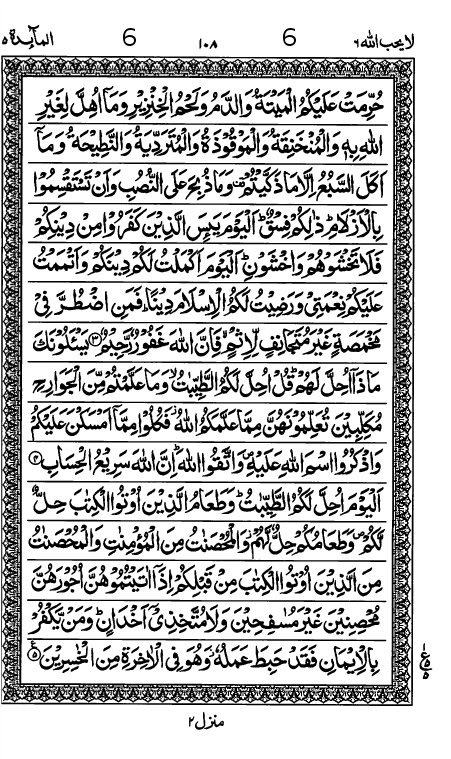 لا يحب الله ٦ 6 ١٠٨ 6 المآئدة ٥
حُرِّمَتْ عَلَيْكُمُ الْمَيْتَةُ وَالدَّمُ وَلَحْمُ الْخِنْزِيْرِ وَمَاۤ اُهِلَّ لِغَيْرِ
اللّٰهِ بِهٖ وَالْمُنْخَنِقَةُ وَالْمَوْقُوْذَةُ وَالْمُتَرَدِّيَةُ وَالنَّطِيْحَةُ وَمَاۤ
اَكَلَ السَّبُعُ اِلَّا مَا ذَكَّيْتُمْ ۫ وَمَا ذُبِحَ عَلَى النُّصُبِ وَاَنْ تَسْتَقْسِمُوْا
بِالْاَزْلَامِ ؕ ذٰلِكُمْ فِسْقٌ ؕ اَلْيَوْمَ يَىِٕسَ الَّذِيْنَ كَفَرُوْا مِنْ دِيْنِكُمْ
فَلَا تَخْشَوْهُمْ وَاخْشَوْنِ ؕ اَلْيَوْمَ اَكْمَلْتُ لَكُمْ دِيْنَكُمْ وَاَتْمَمْتُ
عَلَيْكُمْ نِعْمَتِيْ وَرَضِيْتُ لَكُمُ الْاِسْلَامَ دِيْنًا ؕ فَمَنِ اضْطُرَّ فِيْ
مَخْمَصَةٍ غَيْرَ مُتَجَانِفٍ لِّاِثْمٍ ۙ فَاِنَّ اللّٰهَ غَفُوْرٌ رَّحِيْمٌ ﴿۳﴾ يَسْـَٔلُوْنَكَ
مَاذَاۤ اُحِلَّ لَهُمْ ؕ قُلْ اُحِلَّ لَكُمُ الطَّيِّبٰتُ ۙ وَمَا عَلَّمْتُمْ مِّنَ الْجَوَارِحِ
مُكَلِّبِيْنَ تُعَلِّمُوْنَهُنَّ مِمَّا عَلَّمَكُمُ اللّٰهُ ؗ فَكُلُوْا مِمَّاۤ اَمْسَكْنَ عَلَيْكُمْ
وَاذْكُرُوا اسْمَ اللّٰهِ عَلَيْهِ ۪ وَاتَّقُوا اللّٰهَ ؕ اِنَّ اللّٰهَ سَرِيْعُ الْحِسَابِ ﴿۴﴾
اَلْيَوْمَ اُحِلَّ لَكُمُ الطَّيِّبٰتُ ؕ وَطَعَامُ الَّذِيْنَ اُوْتُوا الْكِتٰبَ حِلٌّ
لَّكُمْ ۪ وَطَعَامُكُمْ حِلٌّ لَّهُمْ ؗ وَالْمُحْصَنٰتُ مِنَ الْمُؤْمِنٰتِ وَالْمُحْصَنٰتُ
مِنَ الَّذِيْنَ اُوْتُوا الْكِتٰبَ مِنْ قَبْلِكُمْ اِذَاۤ اٰتَيْتُمُوْهُنَّ اُجُوْرَهُنَّ
مُحْصِنِيْنَ غَيْرَ مُسٰفِحِيْنَ وَلَا مُتَّخِذِيْۤ اَخْدَانٍ ؕ وَمَنْ يَّكْفُرْ
بِالْاِيْمَانِ فَقَدْ حَبِطَ عَمَلُهٗ ؗ وَهُوَ فِي الْاٰخِرَةِ مِنَ الْخٰسِرِيْنَ ﴿۵﴾
منزل ٢